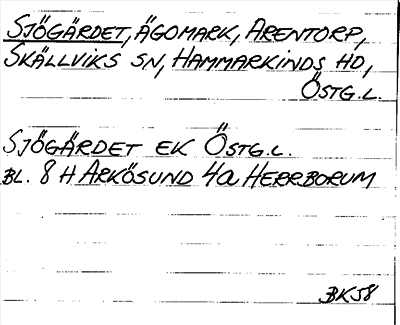 SJÖGÄRDET, ÄGOMARK, ARENTORP,
SKÄLLVIKS SN, HAMMARKINDS HD,
ÖSTG.L.
SJÖGÄRDET EK ÖSTG.L.
BL. 8 H ARKÖSUND 4a HERRBORUM
BK58